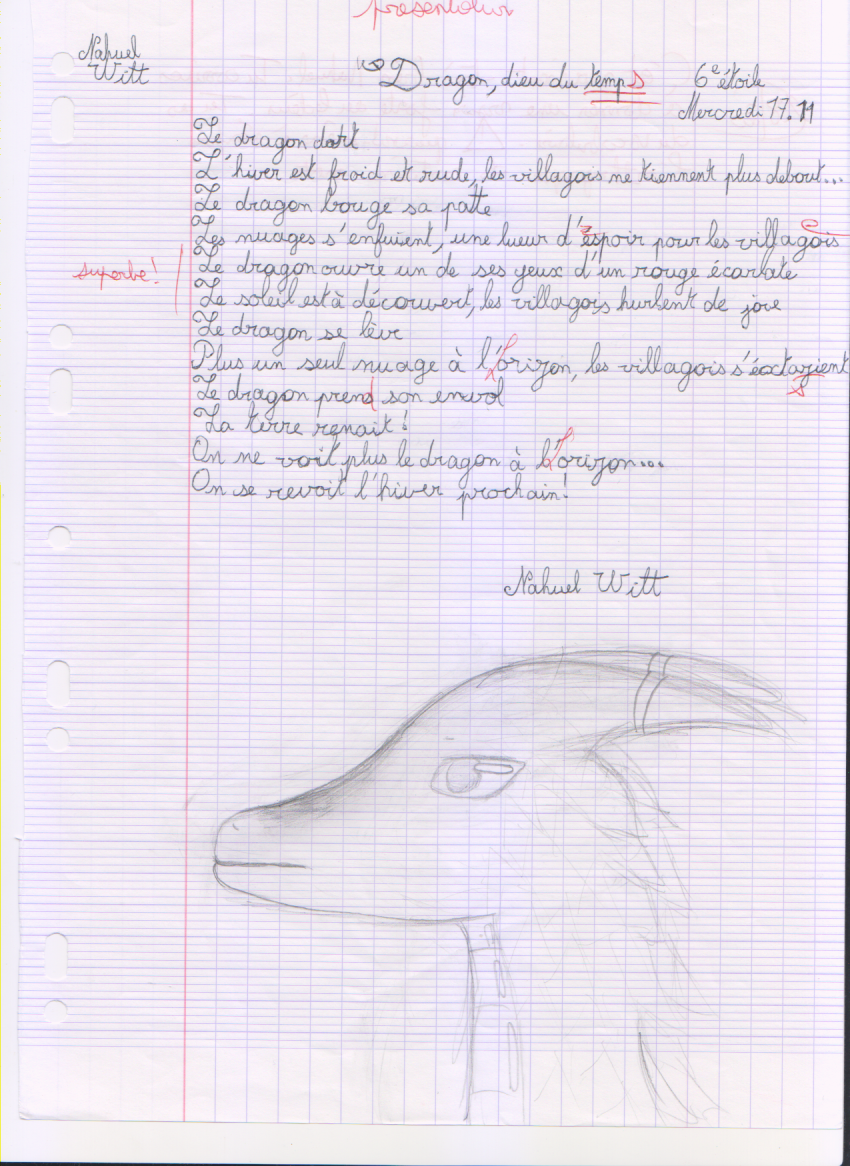 presentateur
Nahuel
Witt
Dragon, dieu du temps
6e étoile
Mercredi 17.11
Le dragon dort
L'hiver est froid et rude, les villagois ne tiennent plus debout...
Le dragon bouge sa patte
Les nuages s'enfuient, une lueur d'espoir pour les villagois
e
superbe!
Le dragon ouvre un de ses yeux d'un rouge écarlate
Le soleil est à découvert, les villagois hurlent de joie
Le dragon se lève
Plus un seul nuage à l'orizon, les villagois s'éxtazient
s
Le dragon prend son envol
La terre renait!
On ne voit plus le dragon à l'orizon...
On se revoit l'hiver prochain!
Nahuel Witt